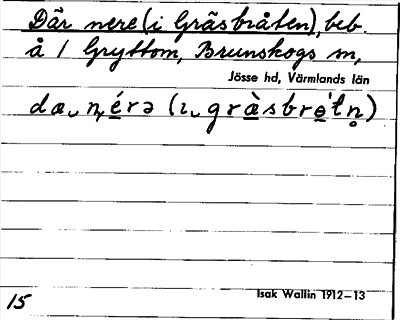 Där nere (i Gräsbråten), beb.
å 1 Gryttom, Brunskogs sn,
Jösse hd, Värmlands län
Isak Wallin 1912–13
15